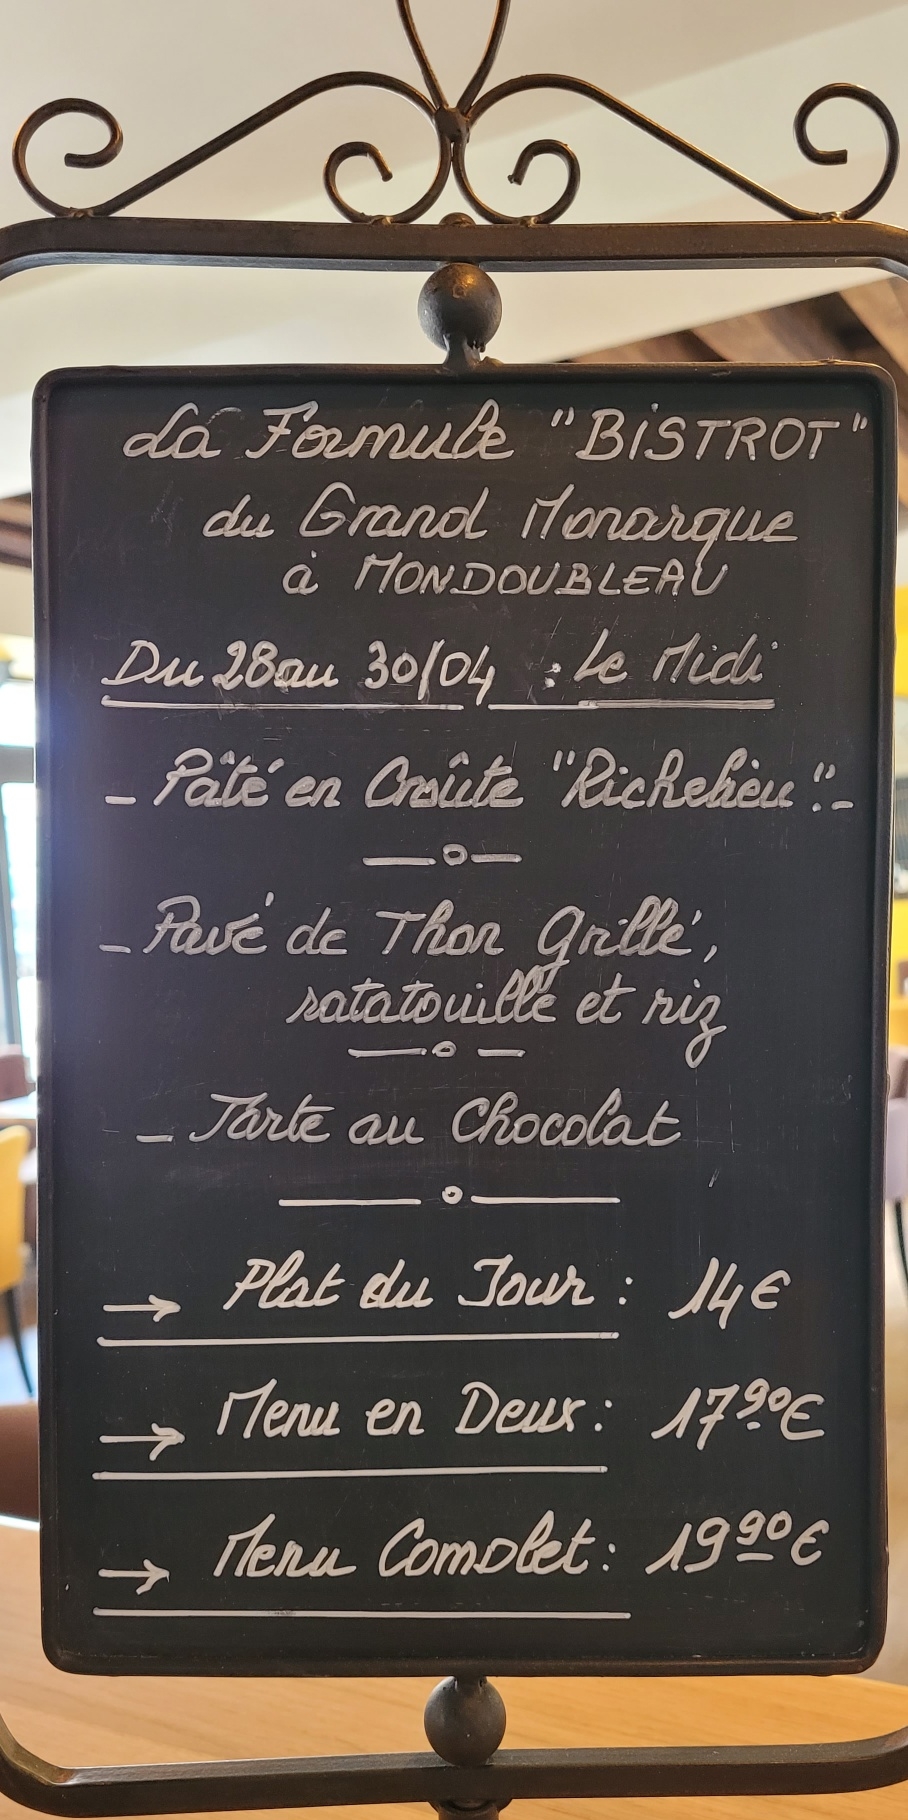 La Formule "BiSTROT"
du Grand Monarque
à MONDOUBLEAU
Du 28 au 30/04 : Le Midi
- Pâté en Croûte "Richelieu".-
- Pavé de Thon Grillé,
ratatouille et riz
- Tarte au Chocolat
→ Plat du Jour : 14€
→ Menu en Deux : 17⁹⁰€
→ Menu Complet : 19⁹⁰€